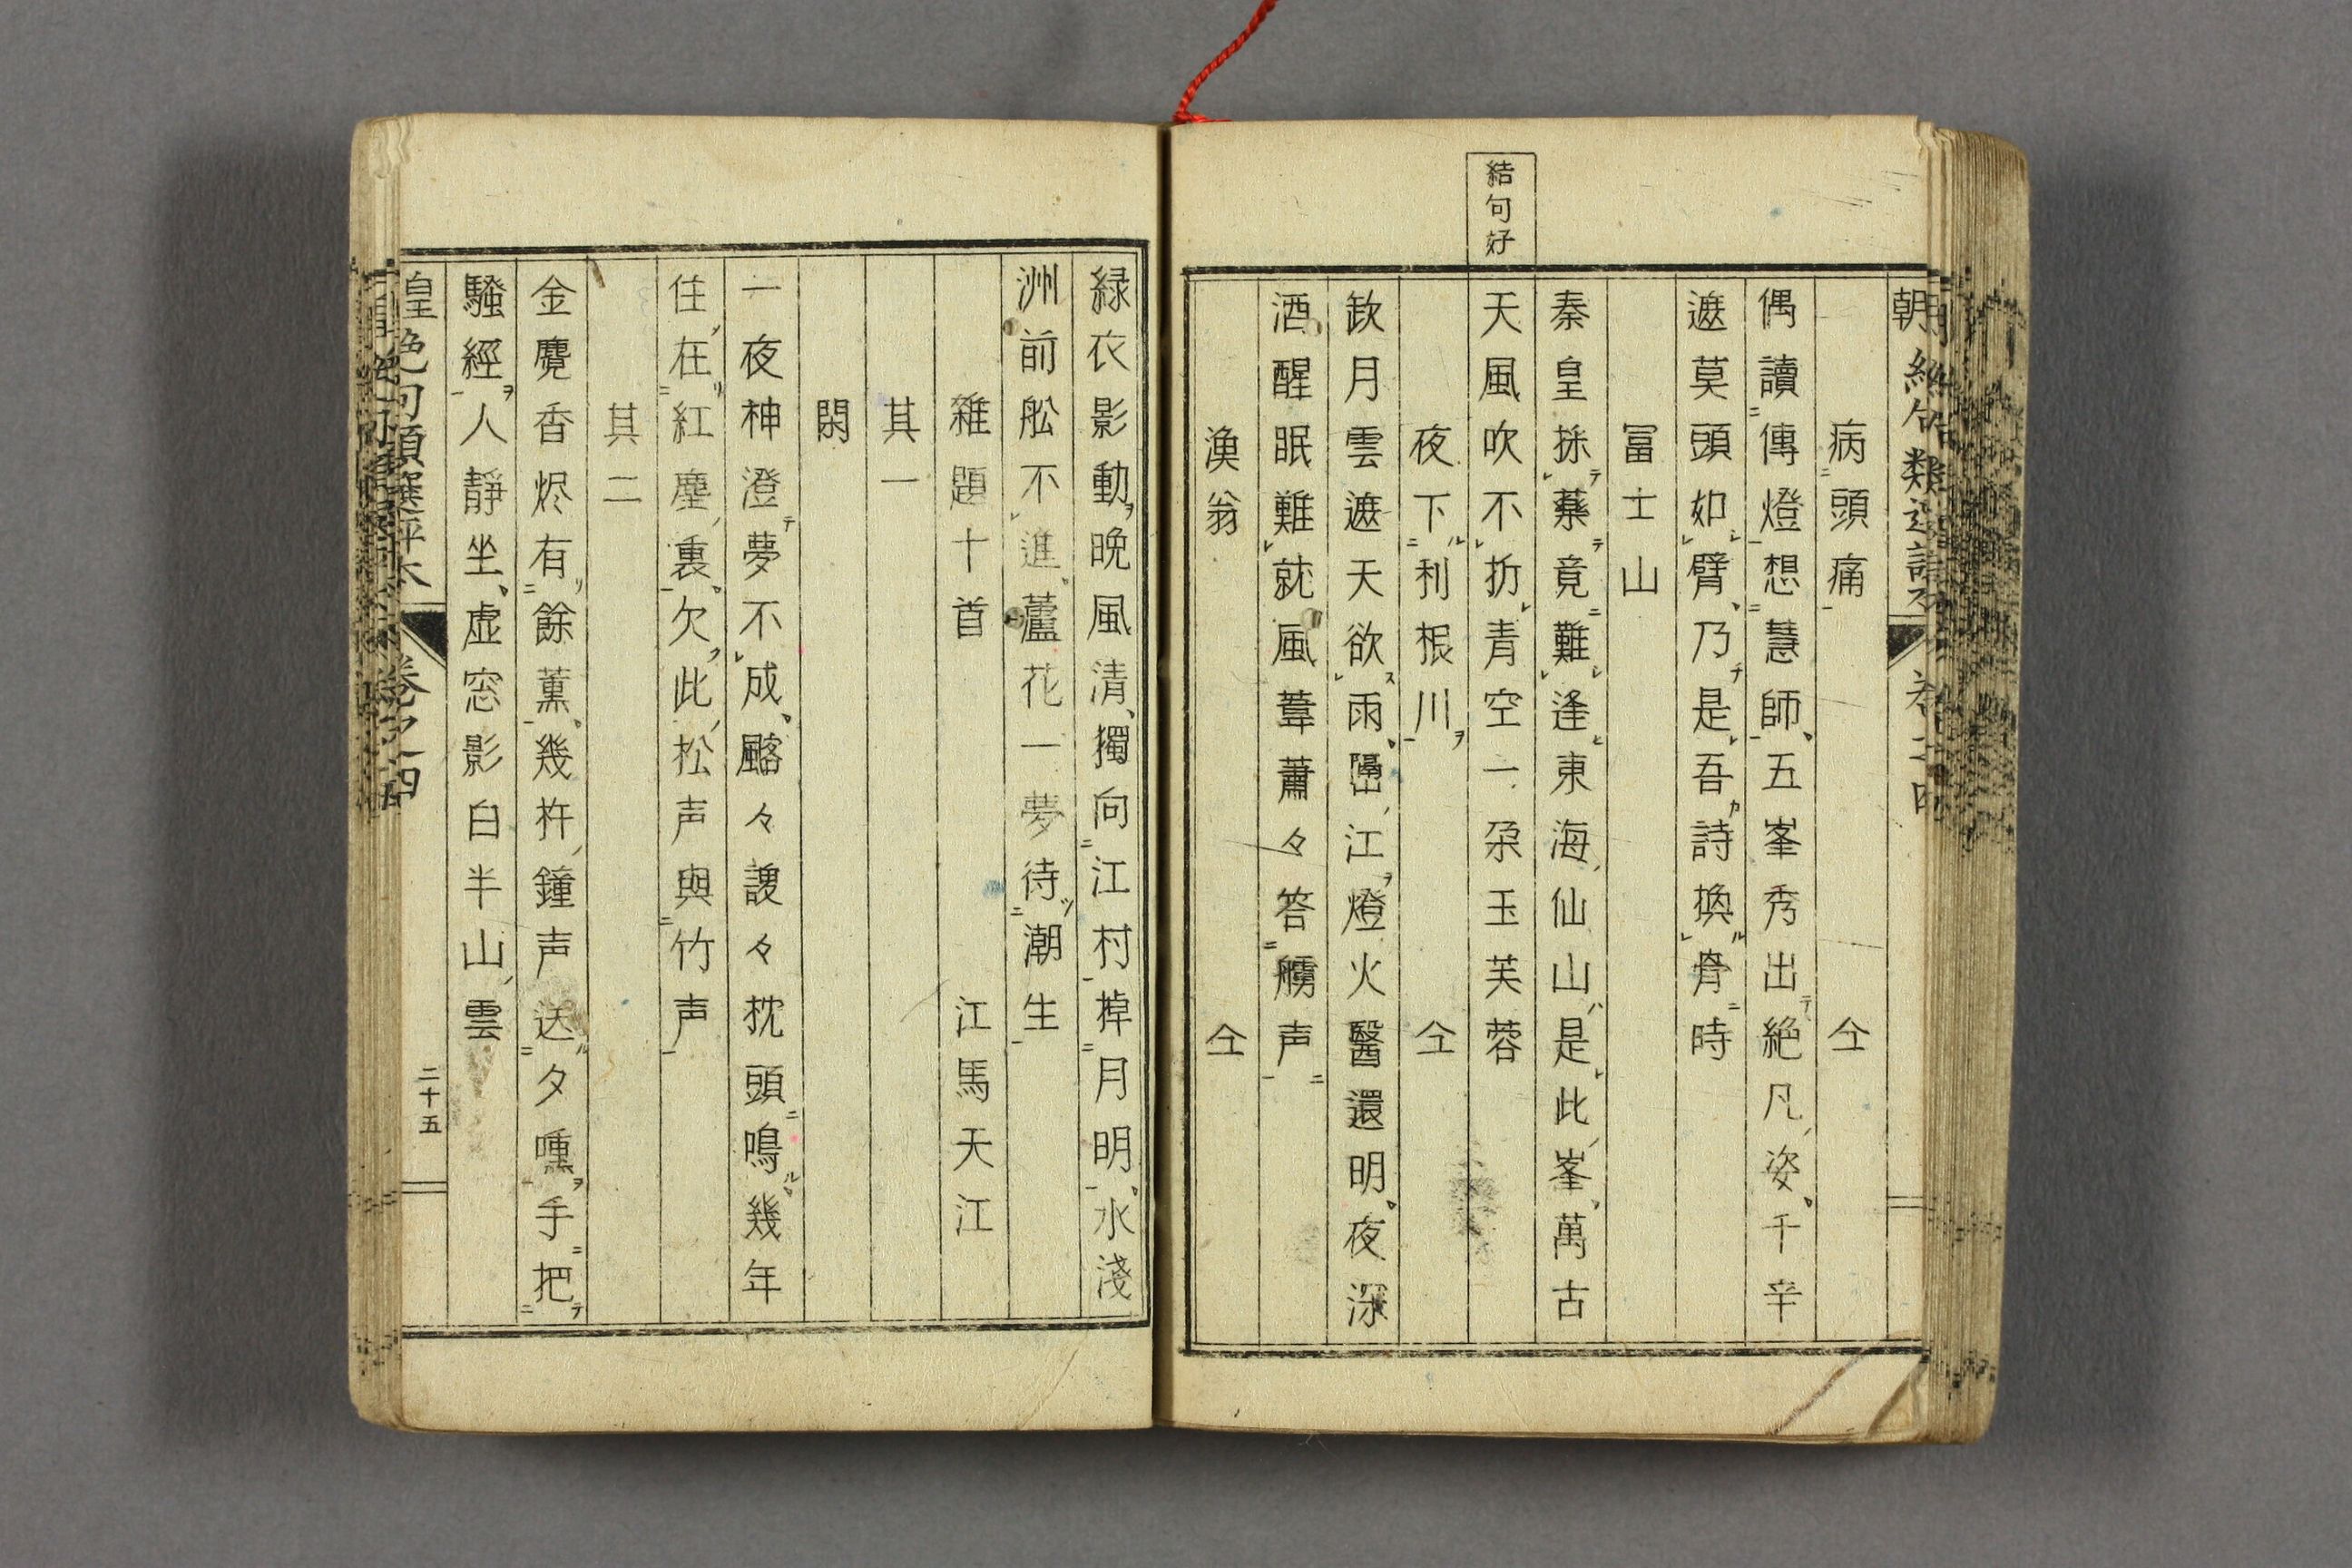 結句好
病頭痛 仝
偶讀傳燈想慧師五峯秀出絶凡姿千辛
遮莫頭如臂乃是吾詩換骨時
冨士山
秦皇採藥竟難逢東海仙山是此峯萬古
天風吹不折青空一朶玉芙蓉
夜下利根川 仝
缺月雲遮天欲雨隔江燈火翳還明夜深
酒醒眠難就風葦蕭々答艣声
漁翁 仝
緑衣影動晩風清獨向江村棹月明水淺
洲前舩不進蘆花一夢待潮生
雜題十首 江馬天江
其一
閑
一夜神澄夢不成飀々謖々枕頭鳴幾年
住在紅塵裏欠此松声與竹声
其二
金麑香烬有餘薫幾杵鐘声送夕曛手把
騷經人靜坐虚窓影白半山雲
皇絶句類選評本 卷之四 二十五